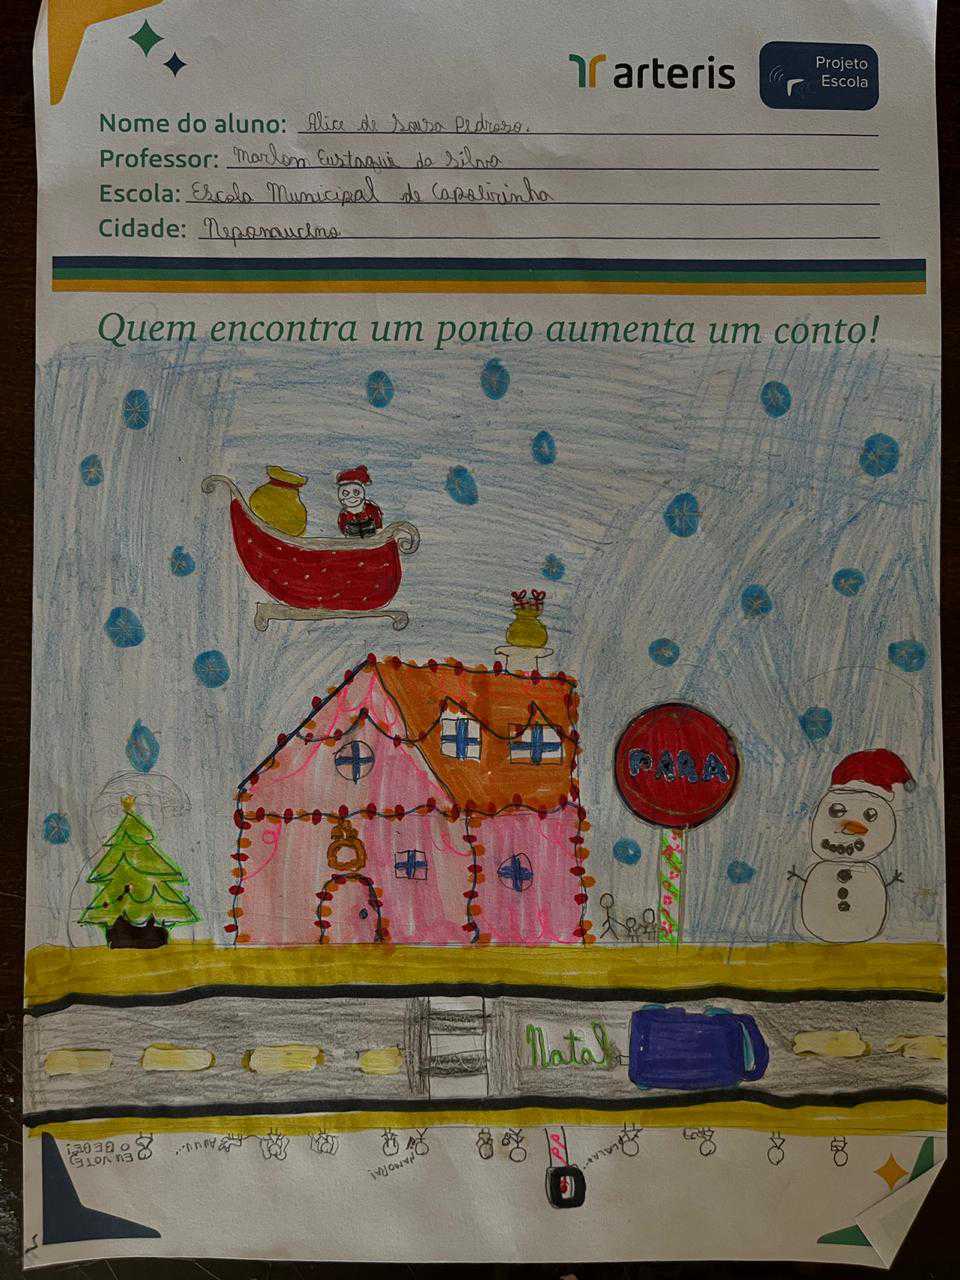 arteris
Projeto
Escola
Nome do aluno: Alice de Sousa Pedroso.
Professor: Marlon Eustaqui da Silva
Escola: Escola Municipal de Capelirinha
Cidade: Nepomuceno
Quem encontra um ponto aumenta um conto!
PARA
Natal